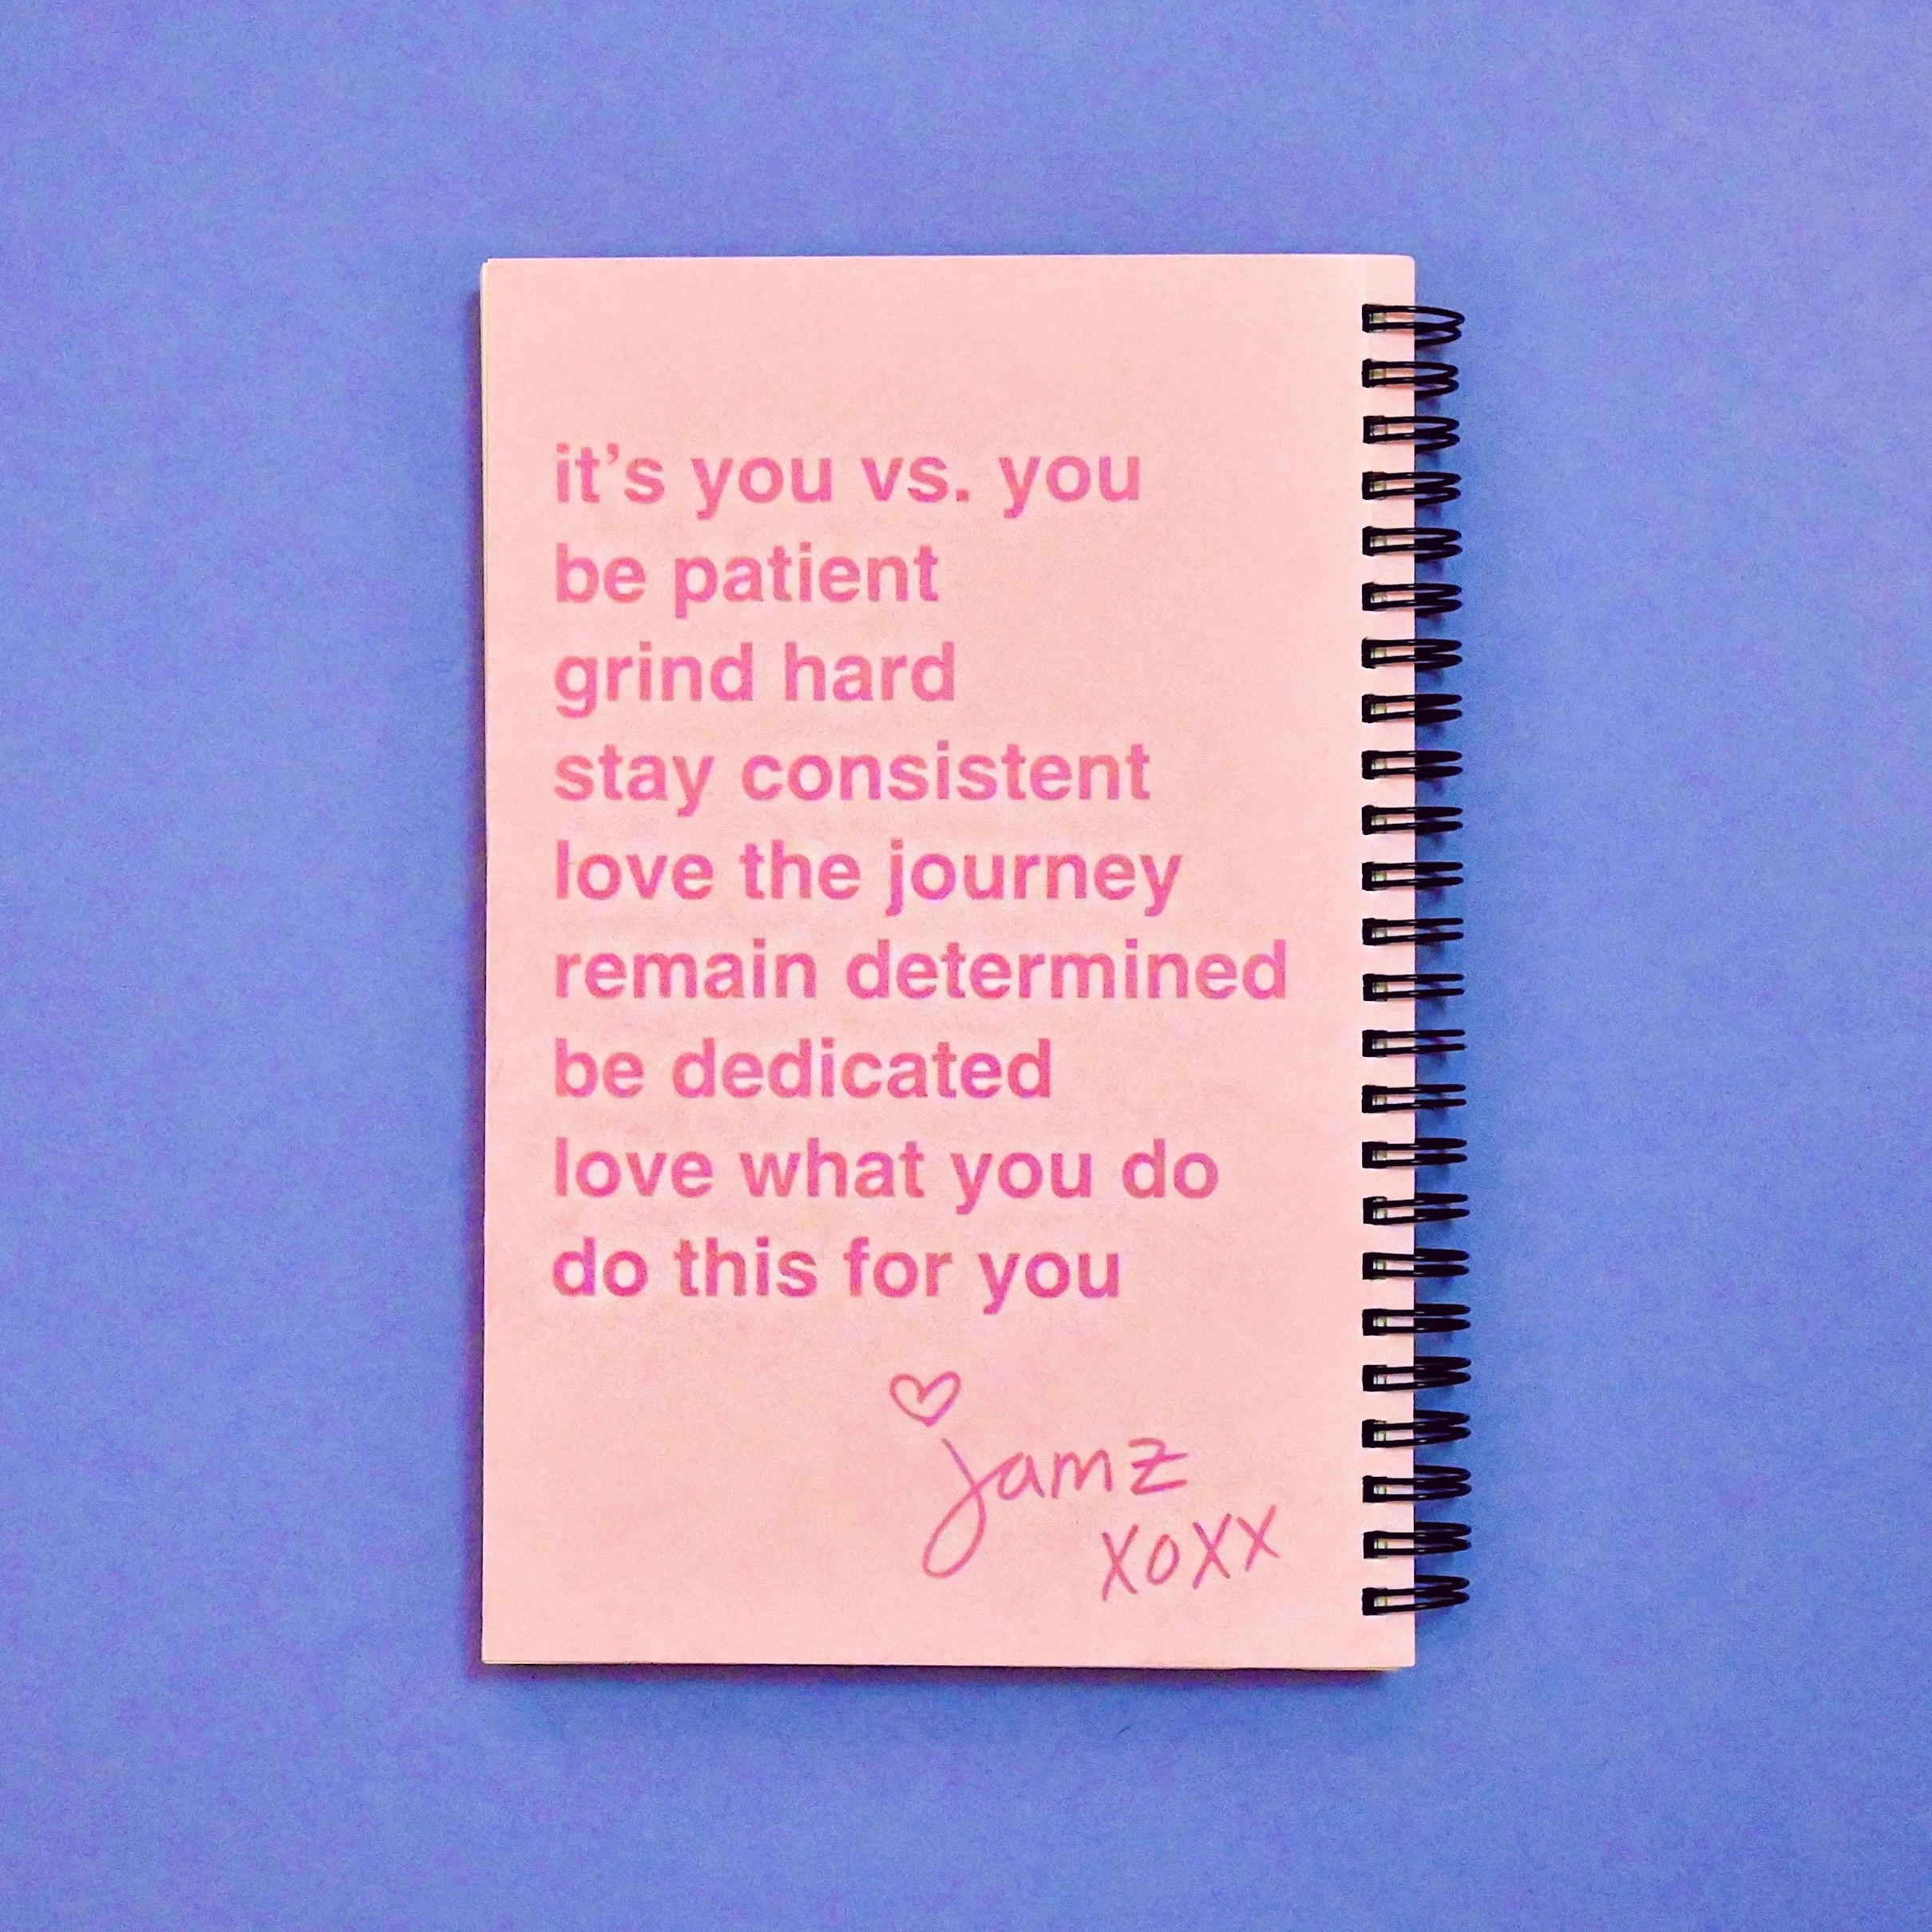 it’s you vs. you
be patient
grind hard
stay consistent
love the journey
remain determined
be dedicated
love what you do
do this for you
jamz
xoxx